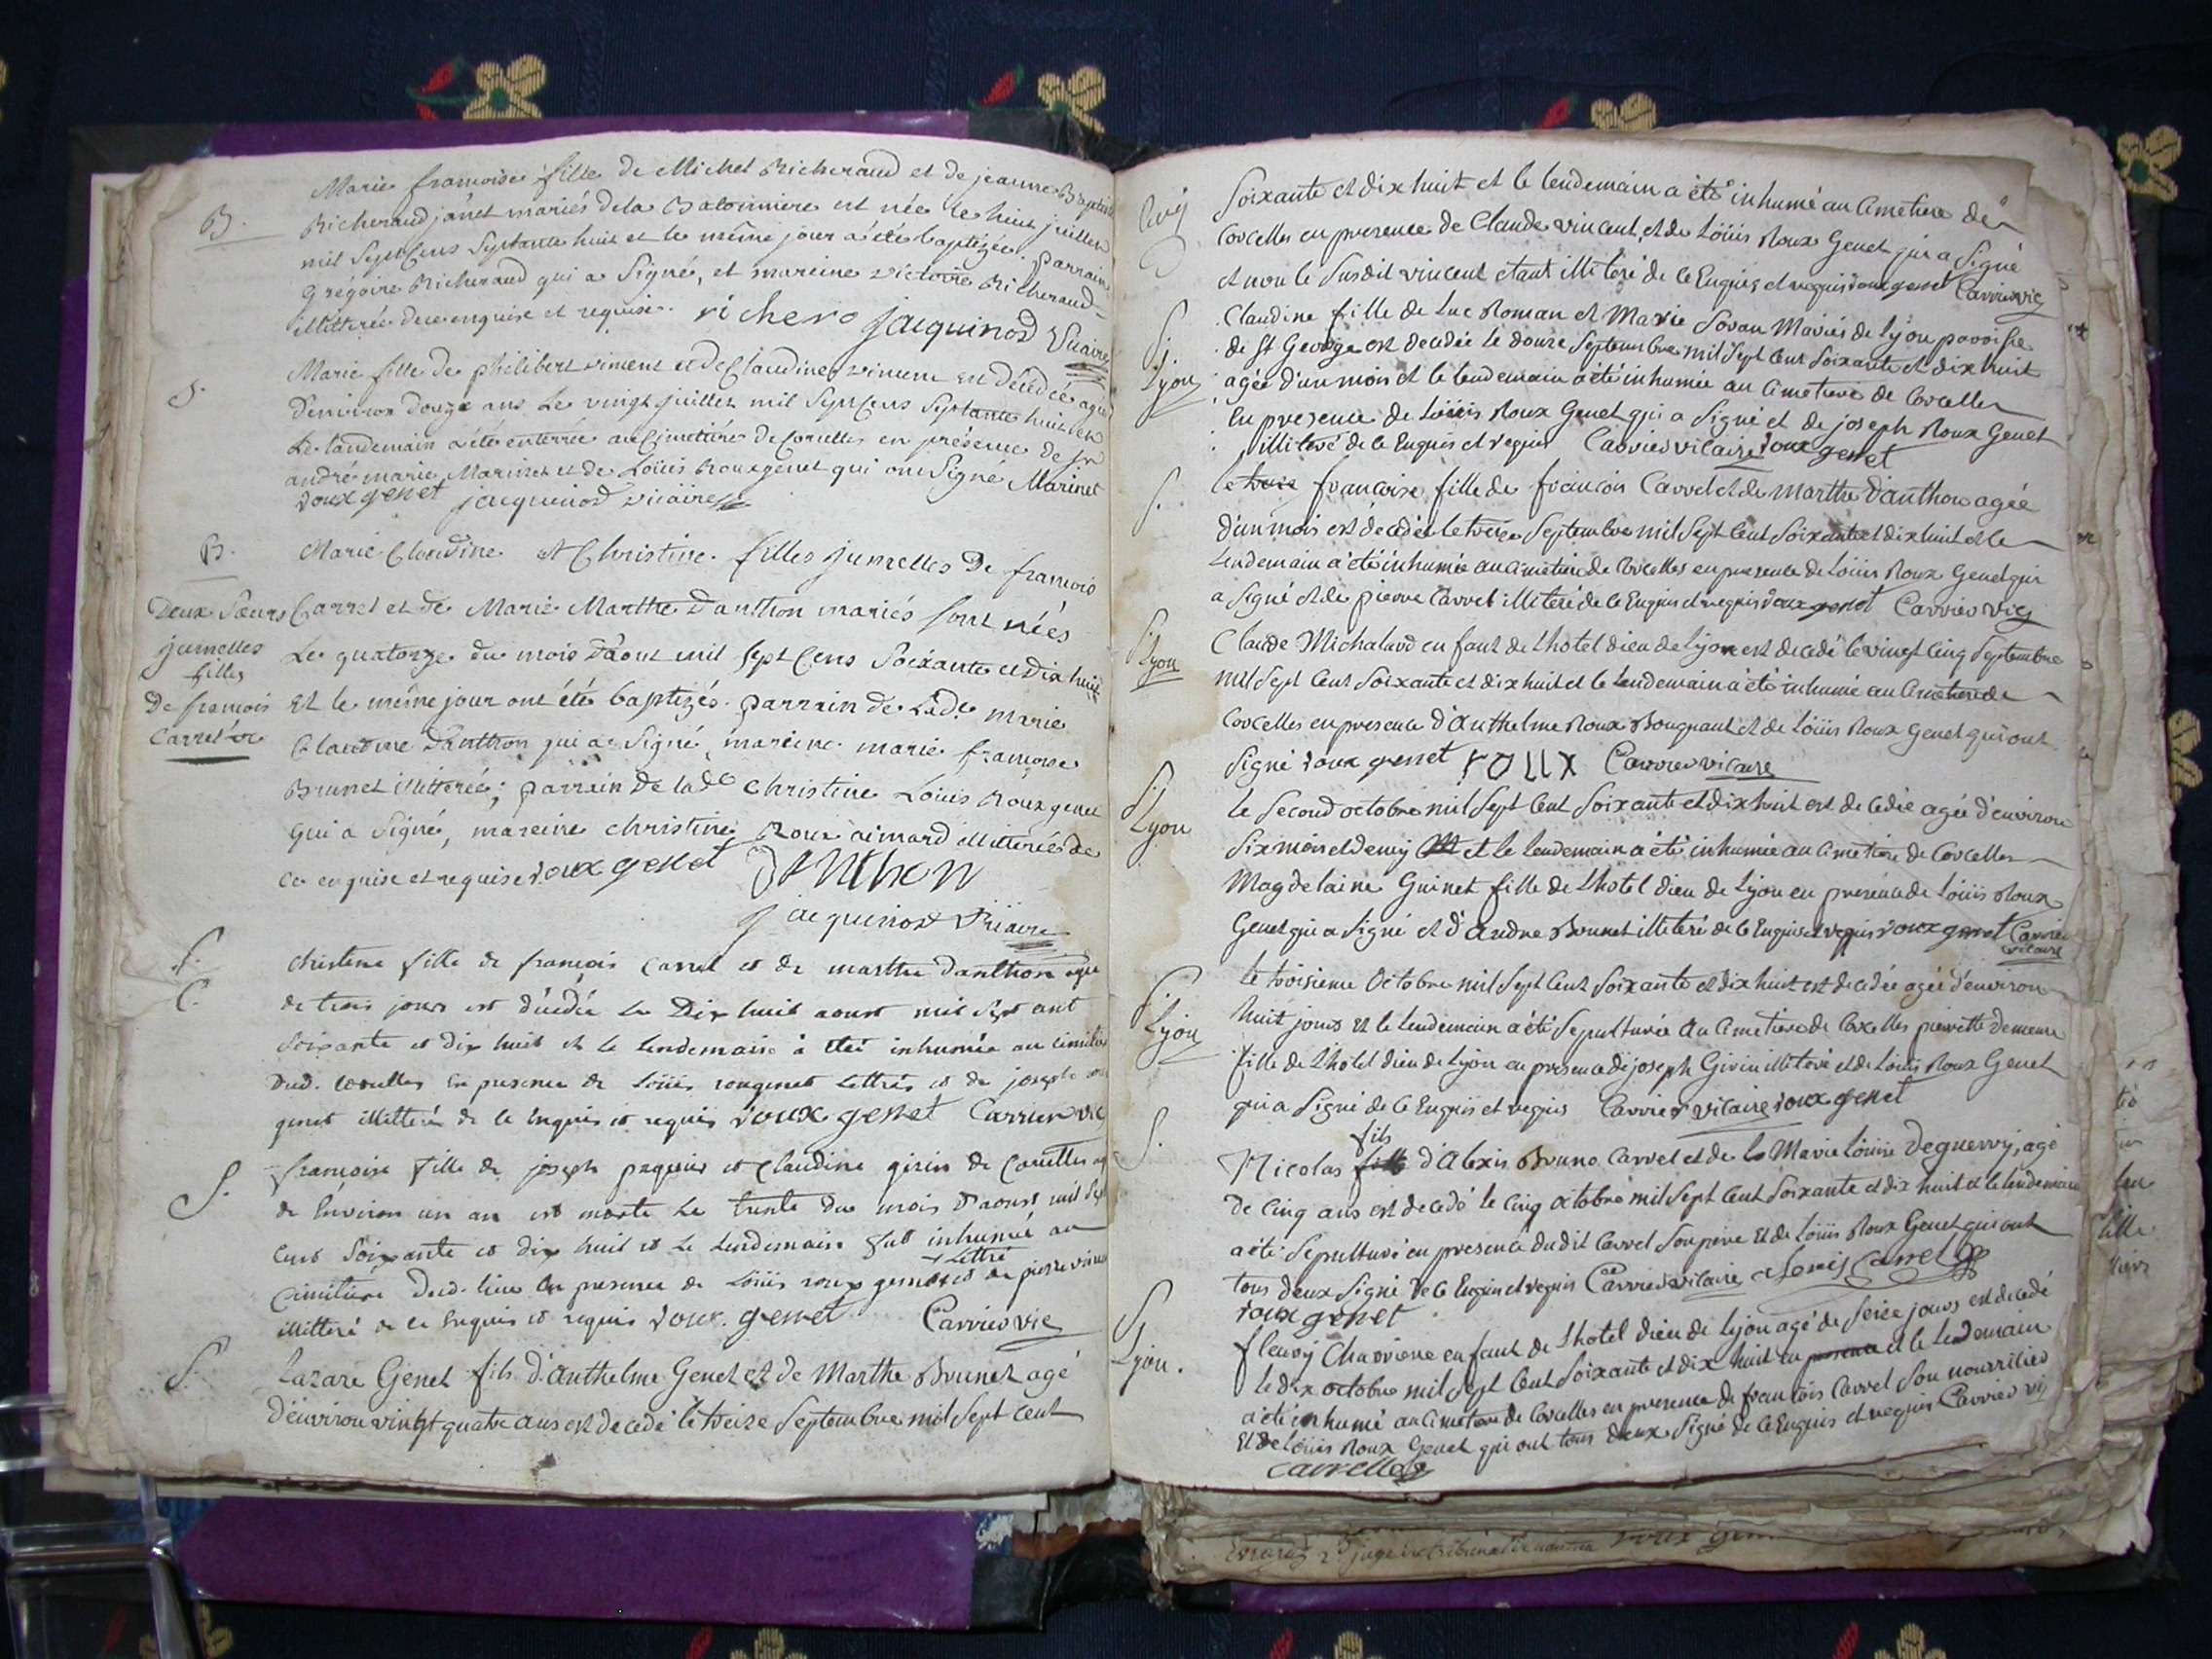 Marie francoise fille de Michel Richeraud et de jeanne Baptiste
B.
Richeraud janet mariés dela Balonniere est née le huit juillet
mil Sept Cens Septante huit et le même jour a été baptizée. parrain
Grégoire Richeraud qui a Signé, et mareine victoire Richeraud
illitterée de ce enquise et requise. richero jacquinod Vicaire
S.
Marie fille de philibert vincent et de Claudine vincent est décédée agée
d'environ douze ans Le vingt juillet mil Sept Cens Septante huit et
Le landemain a été enterrée au Cimetière de Corcelles en présence de Sr
andré marie Marinet et de Loüis Rouxgenet qui ont Signé Marinet
roux genet jacquinod vicaire
B.
Marie Claudine et Christine filles jumelles De francois
Deux Sœurs jumelles filles De francois Carrel &c
Carrel et de Marie Marthe Danthon mariés sont nées
Le quatorze du mois d'aout mil sept Cens Soixante et Dix huit
Et le même jour ont été baptizés. parrain de Lade marie
Claudine Danthon qui a Signé, mareine marie francoise
Brunet illitterée; parrain de lade Christine Loüis Roux genet
qui a Signé, mareine christine Roux aimard illitterées de
ce enquise et requise roux genet Danthon
jacquinod Vicaire
S.
C.
christine fille de francois Carrel et de marthe Danthon agée
de trois jours est décédée Le Dix huit aoust mil sept cent
Soixante et dix huit et le lendemain à eté inhumée au cimitier
Dud. Corcelles En presence de Loüis rougenet Lettrés et de joseph roux
genet illitteré de ce Enquis et requis roux genet Carrier vic
S.
francoise fille de joseph paquier et Claudine girin de Corcelles agée
de Environ un an est morte Le trente du mois D'aoust mil Sept
Cent Soixante et dix huit et le Lendemain fut inhumée au
Cimitiere Dud. lieu En presence de Loüis roux genet Lettré et de pierre vincent
illitteré de ce Enquis et requis roux genet Carrier vic
S.
Lazare Genet fils d'Anthelme Genet et de Marthe Brunet agé
d'environ vingt quatre ans est decedé le treize Septembre mil Sept Cent
Soixante et dix huit et le lendemain a été inhumé au Cimetiere de
Corcelles en presence de Claude vincent, et de Loüis Roux Genet qui a Signé
et non le Susdit vincent etant illiteré de ce Enquis et requis roux genet Carrier vic
S.
Lyon
Claudine fille de Luc Roman et Marie Sovan Mariés de Lyon paroisse
de St George est decedée le douze Septembre mil Sept Cent Soixante et dix huit
agée d'un mois et le lendemain a été inhumée au Cimetiere de Corcelles
En presence de Loüis Roux Genet qui a Signé et de joseph Roux Genet
illiteré de ce Enquis et requis Carrier vicaire roux genet
S.
le treize francoise fille de francois Carrel et de marthe d'anthon agée
d'un mois est decedée le treize Septembre mil Sept Cent Soixante et dix huit et le
Lendemain a été inhumée au Cimetiere de Corcelles en presence de Loüis Roux Genet qui
a Signé et de pierre Carrel illiteré de ce Enquis et requis roux genet Carrier vic
S. Lyon
Claude Michalard enfant de Lhotel dieu de Lyon est decedé le vingt Cinq Septembre
mil Sept Cent Soixante et dix huit et le Lendemain a été inhumé au Cimetiere de
Corcelles en presence d'Anthelme Roux Bouquant et de Loüis Roux Genet qui ont
Signé roux genet roux Carrier vicaire
S. Lyon
le Second octobre mil Sept Cent Soixante et dix huit est decedée agée d'environ
Six mois et demy et le lendemain a été inhumée au Cimetiere de Corcelles
Magdelaine Guinet fille de Lhotel dieu de Lyon en presence de Loüis Roux
Genet qui a Signé et d'Andre Brunet illiteré de ce Enquis et requis roux genet Carrier vicaire
S. Lyon
le troisieme Octobre mil Sept Cent Soixante et dix huit est decedée agée d'environ
huit jours et le lendemain a été Sepulturée Au Cimetiere de Corcelles pierrette Demeure
fille de Lhotel dieu de Lyon en presence de joseph Girin illiteré et de Loüis Roux Genet
qui a Signé de ce Enquis et requis Carrier vicaire roux genet
S.
Nicolas fils d'Alexis Bruno Carrel et de Marie Loüise Deguerry, agé
de Cinq ans est decedé le Cinq octobre mil Sept Cent Soixante et dix huit et le lendemain
a été Sepulturé en presence dudit Carrel Son pere et de Loüis Roux Genet qui ont
tous deux Signé de ce Enquis et requis Carrier vicaire Alexis Carrel
roux genet
S. Lyon.
fleury Charriere enfant de Lhotel dieu de Lyon agé de Seize jours est decedé
le dix octobre mil Sept Cent Soixante et dix huit en presence et le lendemain
a été inhumé au Cimetiere de Corcelles en presence de francois Carrel Son nourricier
Et de Loüis Roux Genet qui ont tous deux Signé de ce Enquis et requis Carrier vic
Carrel